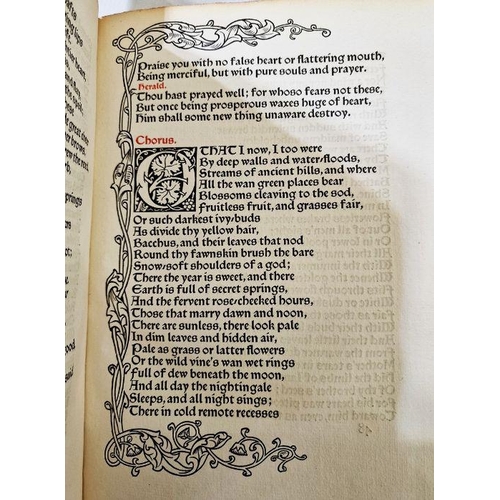 Praise you with no false heart or flattering mouth,
Being merciful, but with pure souls and prayer.
Herald.
Thou hast prayed well; for whoso fears not these,
But once being prosperous waxes huge of heart,
Him shall some new thing unaware destroy.
Chorus.
O THAT I now, I too were
By deep walls and water-floods,
Streams of ancient hills, and where
All the wan green places bear
Blossoms cleaving to the sod,
Fruitless fruit, and grasses fair,
Or such darkest ivy-buds
As divide thy yellow hair,
Bacchus, and their leaves that nod
Round thy fawnskin brush the bare
Snow-soft shoulders of a god;
There the year is sweet, and there
Earth is full of secret springs,
And the fervent rose-cheeked hours,
Those that marry dawn and noon,
There are sunless, there look pale
In dim leaves and hidden air,
Pale as grass or latter flowers
Or the wild vine's wan wet rings
Full of dew beneath the moon,
And all day the nightingale
Sleeps, and all night sings;
There in cold remote recesses